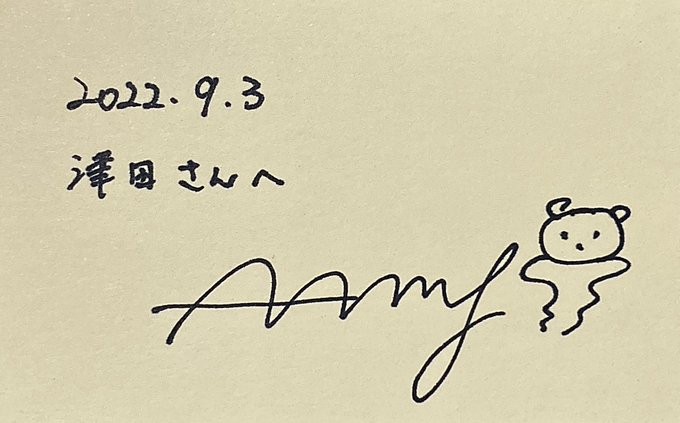 2022.9.3
津田さんへ
Amy